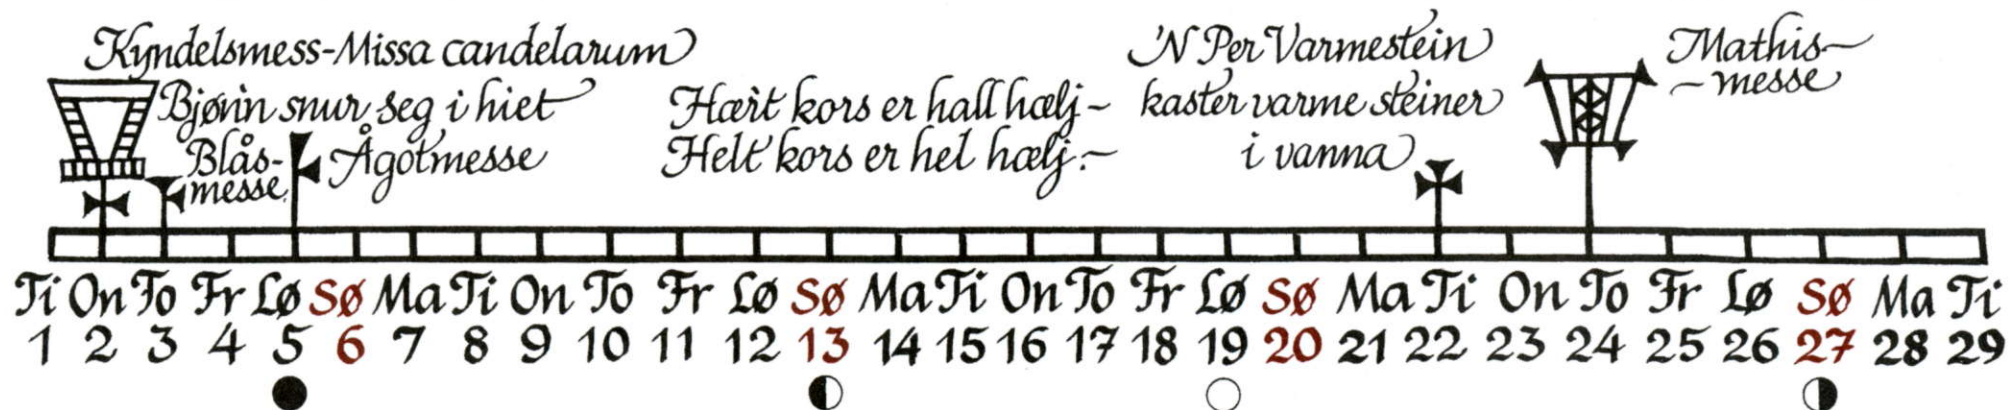 Kyndelsmess-Missa candelarum
Bjønn snur seg i hiet
Blås-
messe
Ågotmesse
Hært kors er hall hælj-
Helt kors er hel hælj.-
'N Per Varmestein
kaster varme steiner
i vanna
Mathis-
-messe
Ti On To Fr Lø Sø Ma Ti On To Fr Lø Sø Ma Ti On To Fr Lø Sø Ma Ti On To Fr Lø Sø Ma Ti
1 2 3 4 5 6 7 8 9 10 11 12 13 14 15 16 17 18 19 20 21 22 23 24 25 26 27 28 29